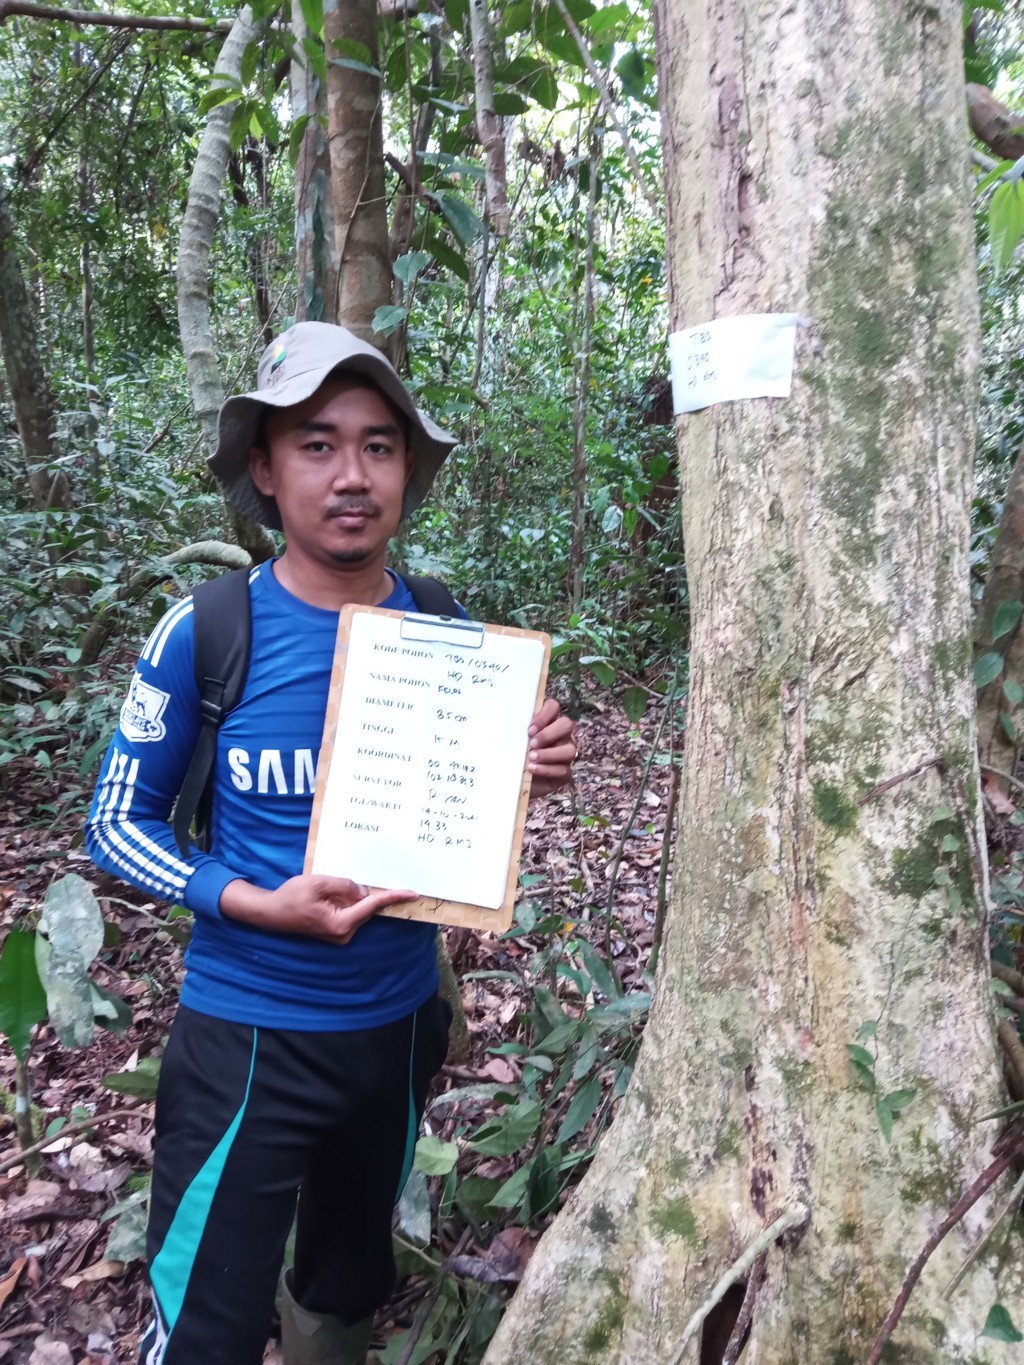 TBS
0340
HD RMJ
KODE POHON TBS/0340/
HD RMJ
NAMA POHON
DIAMETER 85 cm
TINGGI 15 M
KOORDINAT
SURVEYOR RIYAN
TGL/WAKTU
14.33
LOKASI HD RMJ
SAM